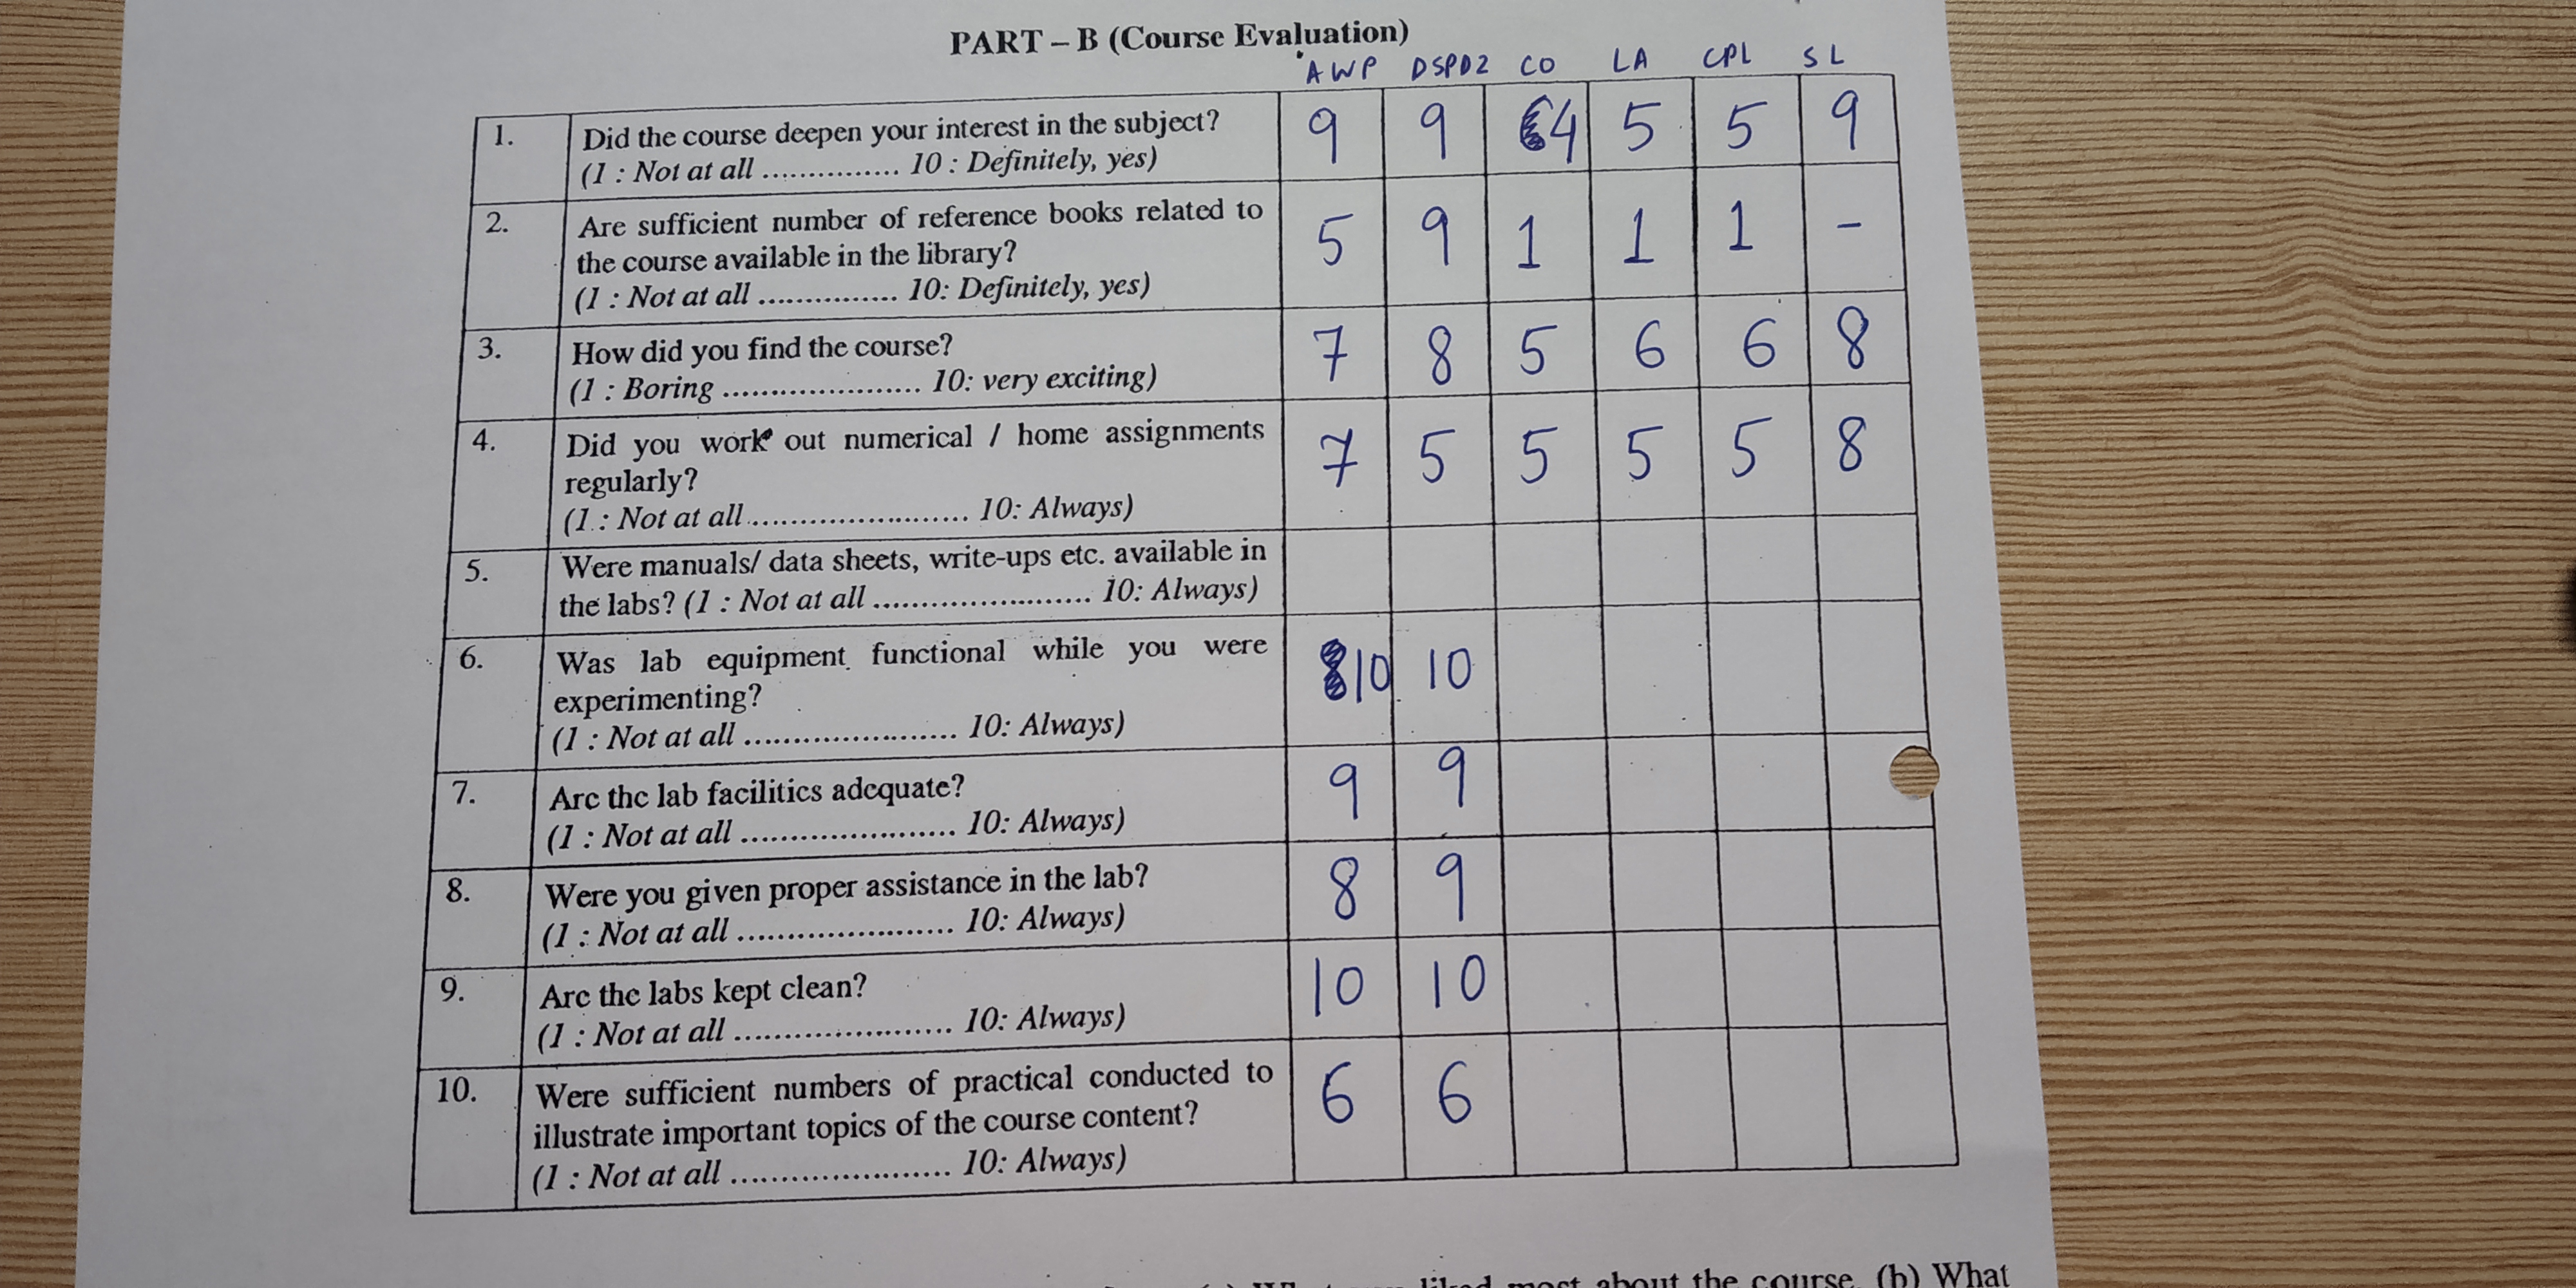 PART – B (Course Evaluation)
AWP DSPD2 CO LA CPL SL
1. Did the course deepen your interest in the subject? 9 9 4 5 5 9
(1 : Not at all ............... 10 : Definitely, yes)
2. Are sufficient number of reference books related to 5 9 1 1 1 -
the course available in the library?
(1 : Not at all ............... 10: Definitely, yes)
3. How did you find the course? 7 8 5 6 6 8
(1 : Boring ...................... 10: very exciting)
4. Did you work out numerical / home assignments 7 5 5 5 5 8
regularly?
(1 : Not at all ........................ 10: Always)
5. Were manuals/ data sheets, write-ups etc. available in
the labs? (1 : Not at all ........................ 10: Always)
6. Was lab equipment functional while you were 10 10
experimenting?
(1 : Not at all ........................ 10: Always)
7. Are the lab facilities adequate? 9 9
(1 : Not at all ........................ 10: Always)
8. Were you given proper assistance in the lab? 8 9
(1 : Not at all ........................ 10: Always)
9. Are the labs kept clean? 10 10
(1 : Not at all ........................ 10: Always)
10. Were sufficient numbers of practical conducted to 6 6
illustrate important topics of the course content?
(1 : Not at all ........................ 10: Always)
liked most about the course. (b) What